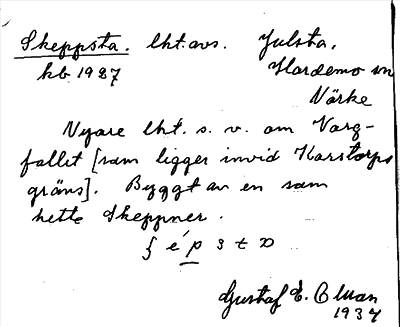 Skeppsta. lht. avs. Julsta,
kb 1987 Hardemo sn
Närke
Nyare lht. s. v. om Varg-
fallet [som ligger invid Karstorps
gräns]. Byggt av en som
hette Skeppner.
Gustaf E.
1937